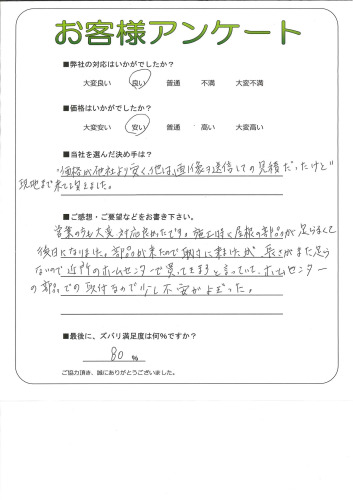 お客様アンケート
■弊社の対応はいかがでしたか？
大変良い 良い 普通 不満 大変不満
■価格はいかがでしたか？
大変安い 安い 普通 高い 大変高い
■当社を選んだ決め手は？
価格が他社より安く他は、画像を送信しての見積だったけど
現地まで来て頂きました。
■ご感想・ご要望などをお書き下さい。
営業の方も大変対応良かったです。施工時に屋根の部品が足らなくて
後日になりました。部品が来たので取付に来ましたが、長さがまた足ら
ないので近所のホームセンターで買ってきますと言っていて、ホームセンター
の部品での取付なので少し不安がよぎった。
■最後に、ズバリ満足度は何％ですか？
80 ％
ご協力頂き、誠にありがとうございました。